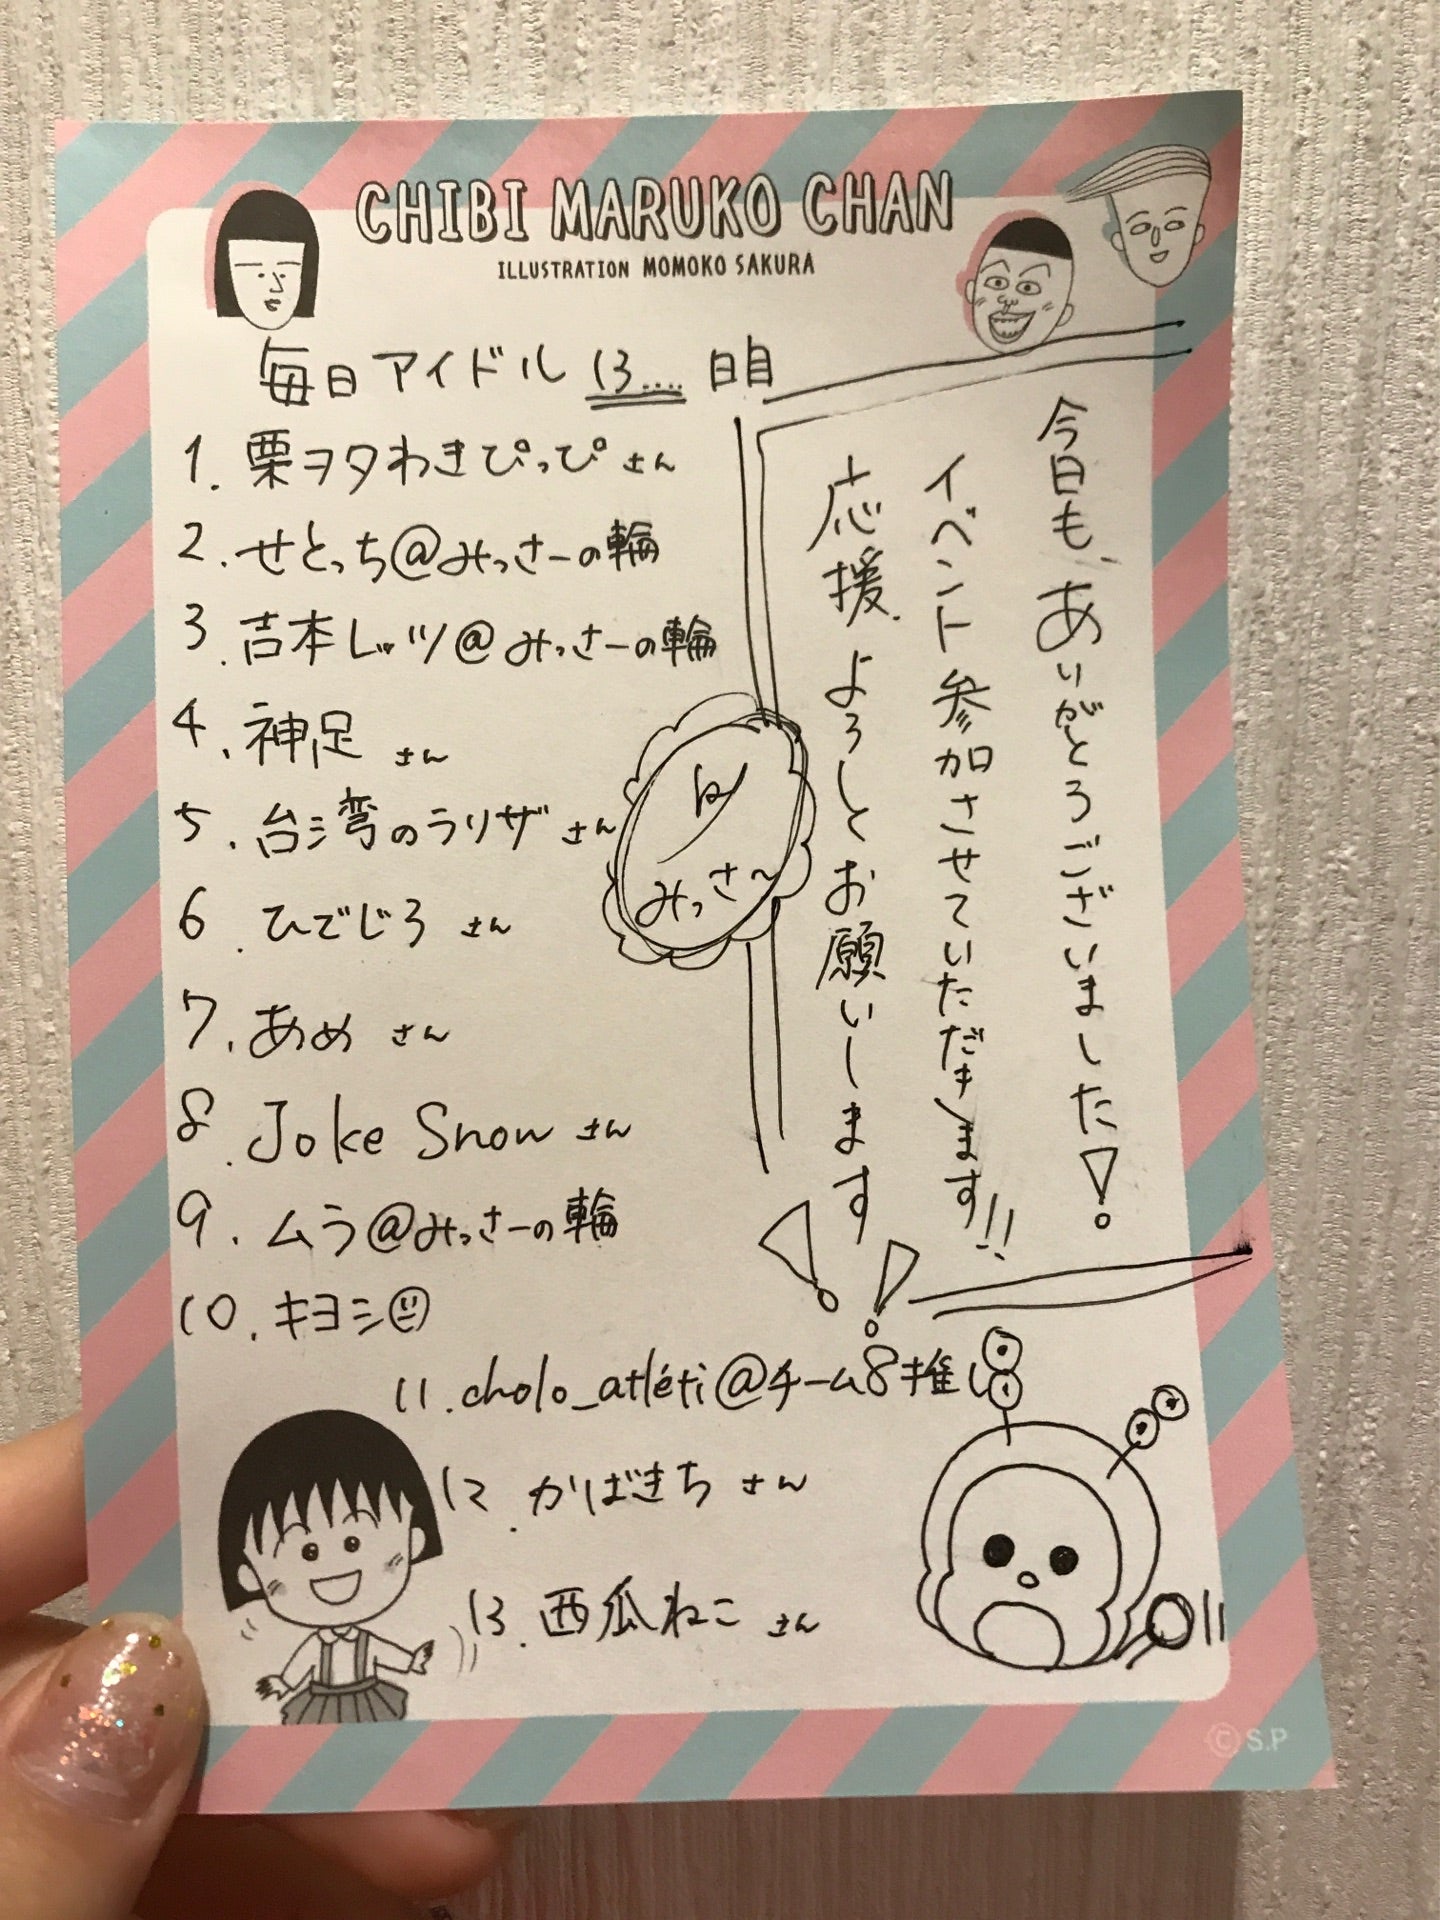 CHIBI MARUKO CHAN
ILLUSTRATION MOMOKO SAKURA
毎日アイドル 13.... 日目
1. 栗ヲタわきぴっぴ さん
2. せとっち@みっさーの輪
3. 吉本レッツ@みっさーの輪
4. 神足 さん
5. 台湾のラリザ さん
6. ひでじろ さん
7. あめ さん
8. Joke Snow さん
9. ムラ@みっさーの輪
10. キヨシ
11. cholo_atléti@チーム8推し
12. かばきち さん
13. 西瓜ねこ さん
今日も、ありがとうございました!
イベント参加させていただきます!!
応援、よろしくお願いします!!
by
みっさ〜
© S.P